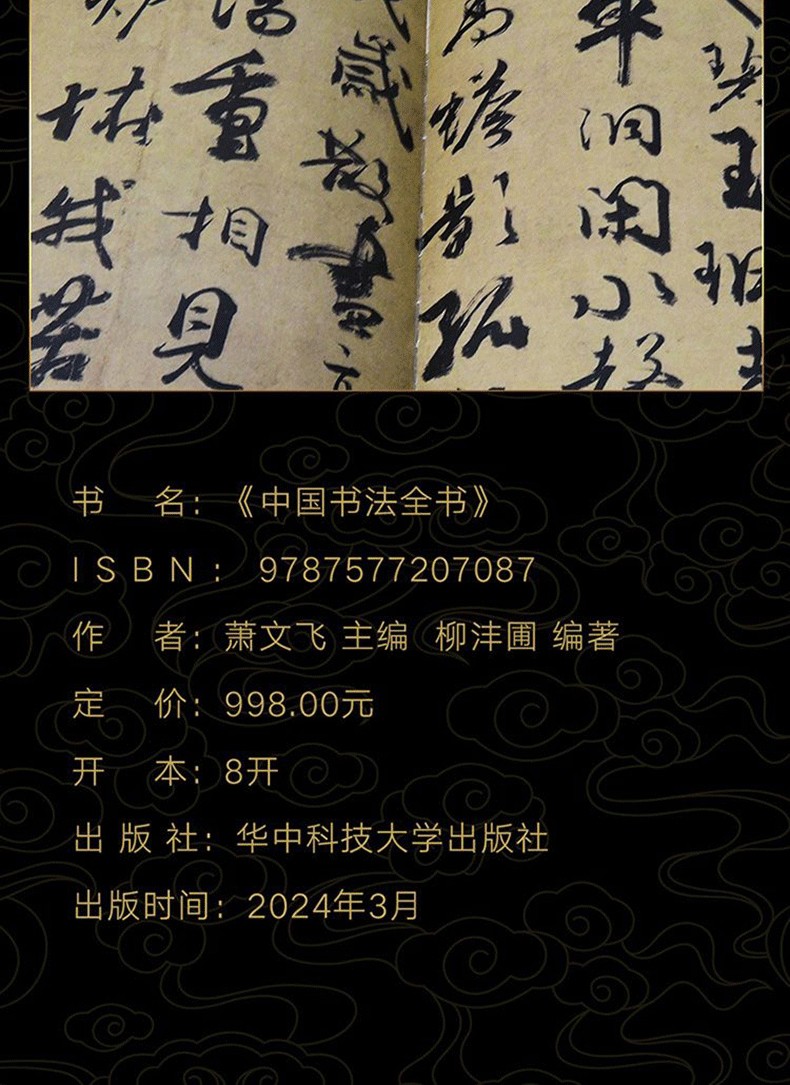 碧
玉
珇
車
洞
閑
小
蟾
影
孤
歲
散
書
重
相
見
我
若
书 名：《中国书法全书》
ISBN： 9787577207087
作 者：萧文飞 主编 柳沣圃 编著
定 价：998.00元
开 本：8开
出 版 社：华中科技大学出版社
出版时间：2024年3月